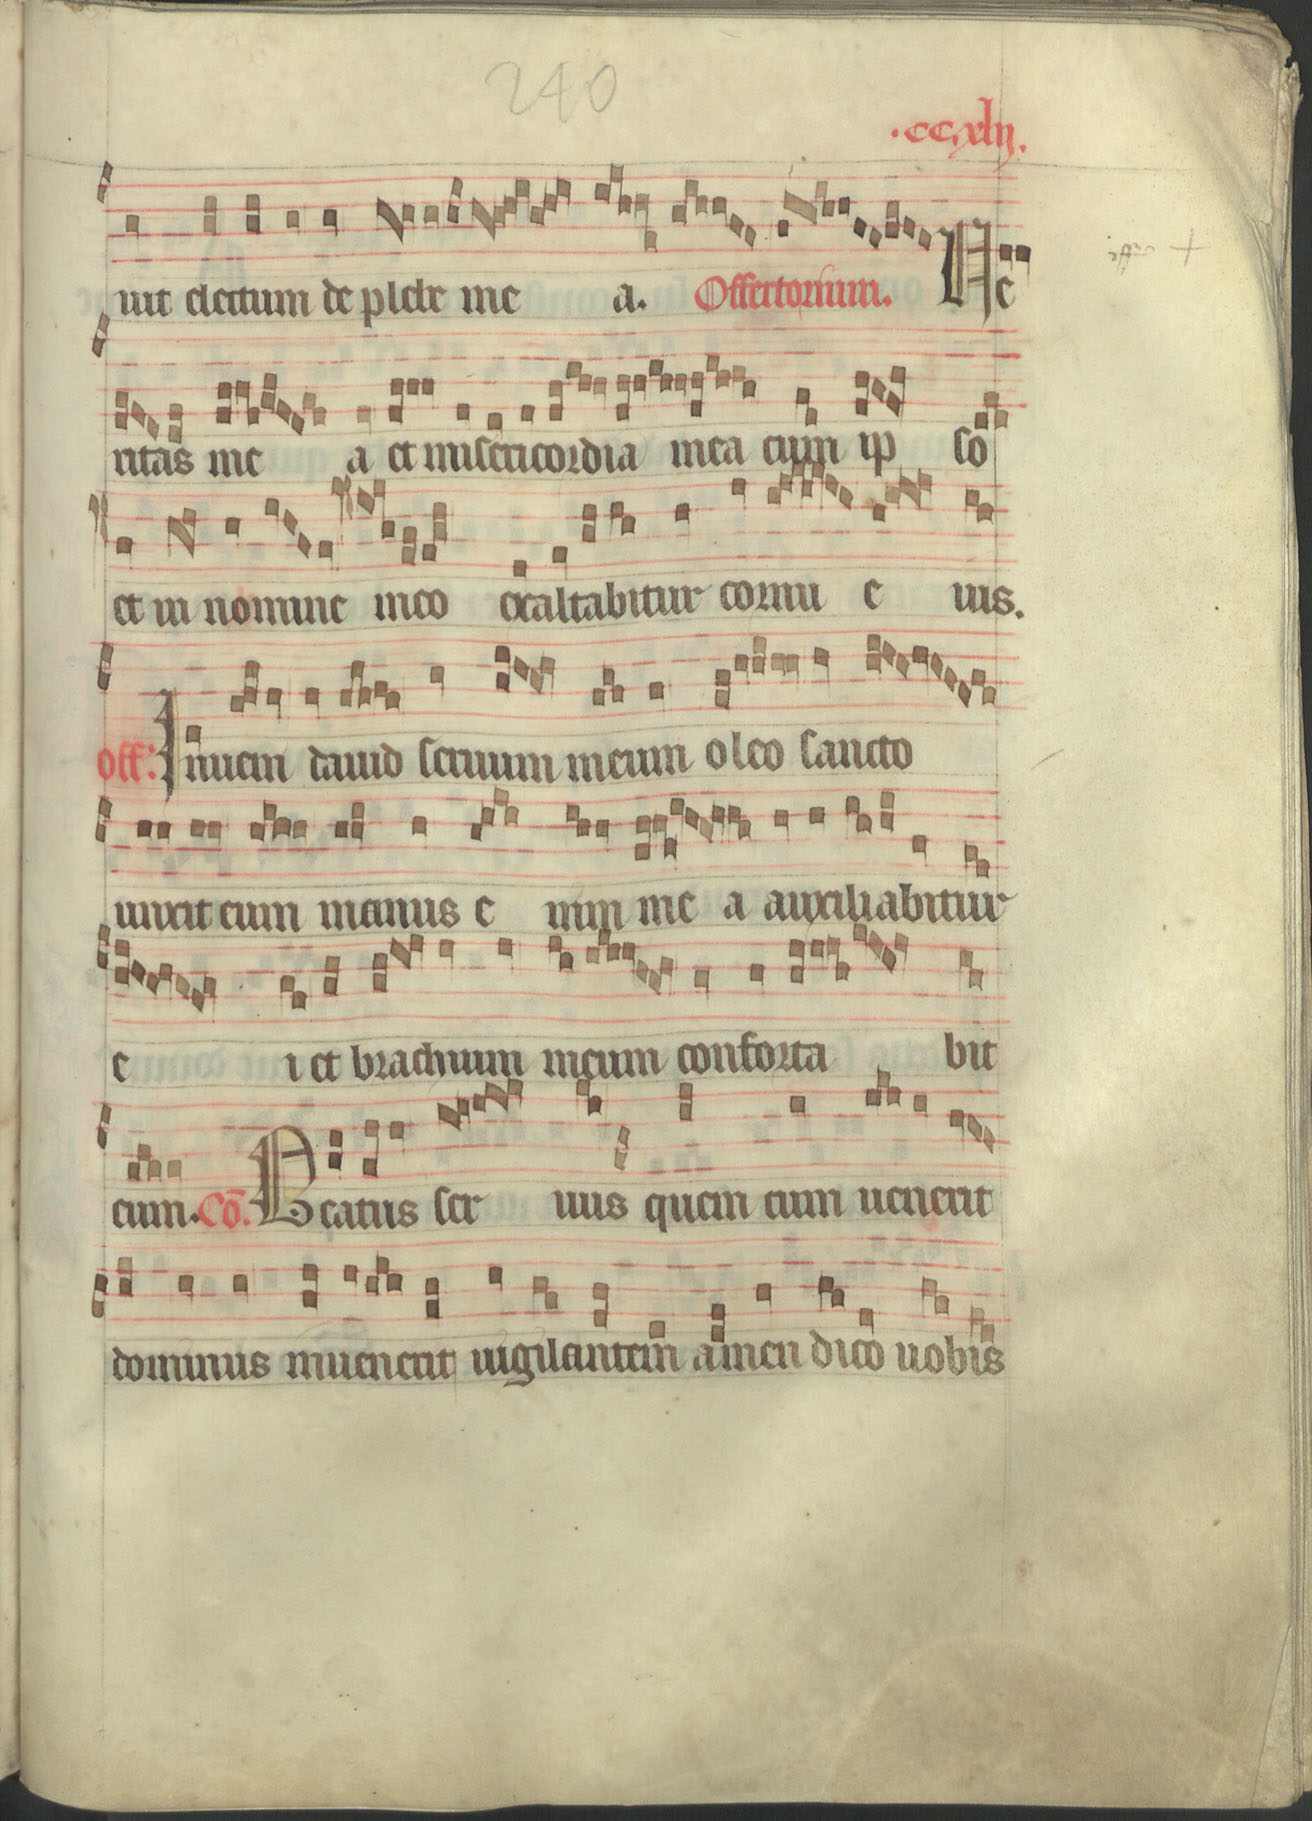 240
.ccxlij.
uit electum de plebe me a. Offertorium. Ve
ritas me a et misericordia mea cum ip so
et in nomine meo exaltabitur cornu e ius.
off. Inueni dauid seruum meum oleo sancto
unxit eum manus e nim me a auxiliabitur
e i et brachium meum conforta bit
eum. Cō. Beatus ser uus quem cum uenerit
dominus inuenerit uigilantem amen dico uobis